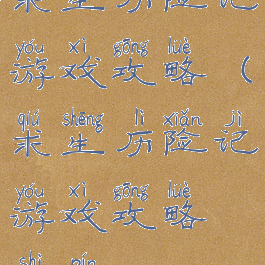 求生历险记
yóu xì gōng lüè
游戏攻略（
qiú shēng lì xiǎn jì
求生历险记
yóu xì gōng lüè
游戏攻略
shì pín